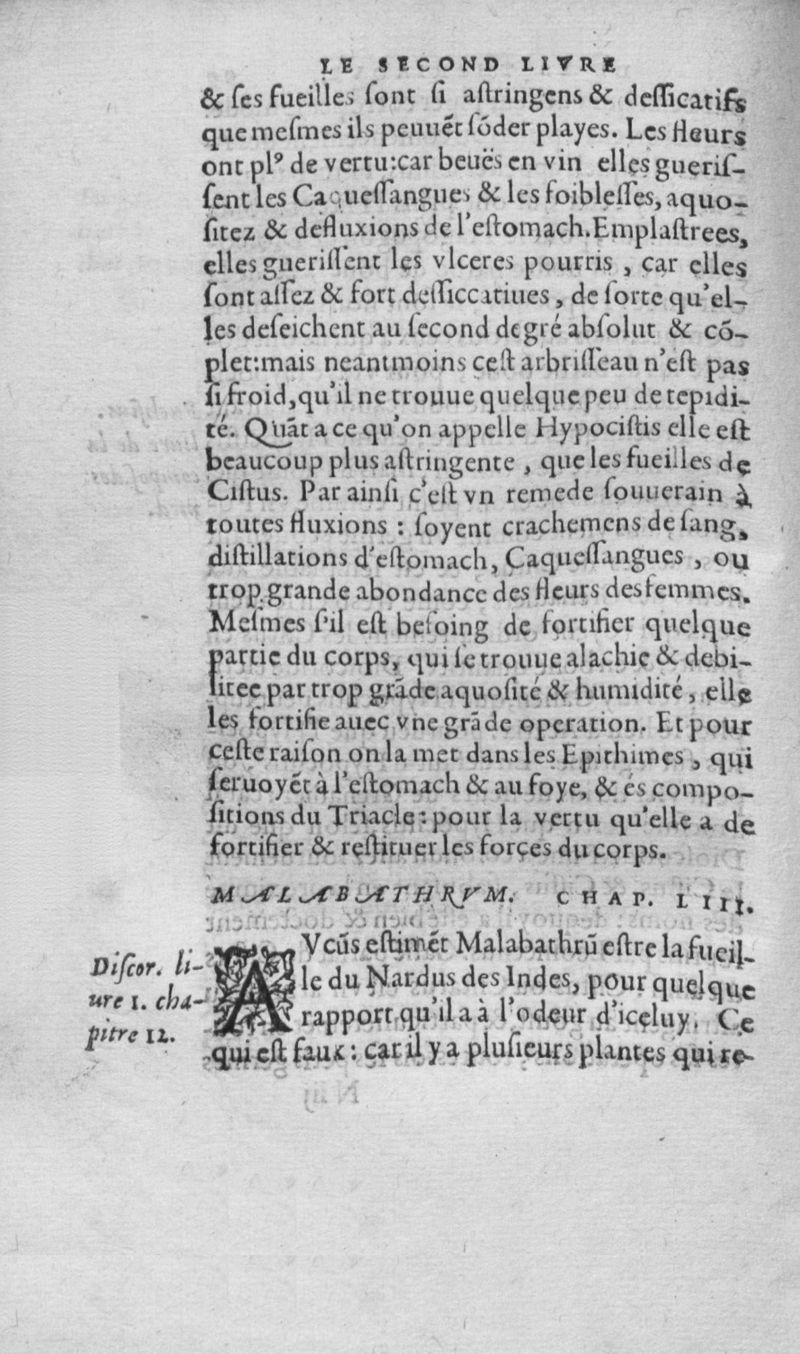 LE SECOND LIVRE
& ſes fueilles ſont ſi aſtringens & deſſicatifs
que meſmes ils peuuẽt ſõder playes. Les fleurs
ont plꝰ de vertu:car beuës en vin elles gueriſ-
ſent les Caqueſſangues & les foibleſſes, aquo-
ſitez & defluxions de l'eſtomach.Emplaſtrees,
elles gueriſſent les vlceres pourris , car elles
ſont aſſez & fort deſſiccatiues , de ſorte qu'el-
les deſeichent au ſecond degré abſolut & cõ-
plet:mais neantmoins ceſt arbriſſeau n'eſt pas
ſi froid,qu'il ne trouue quelque peu de tepidi-
té. Quãt a ce qu'on appelle Hypociſtis elle eſt
beaucoup plus aſtringente , que les fueilles de
Ciſtus. Par ainſi c'eſt vn remede ſouuerain à
toutes fluxions : ſoyent crachemens de ſang,
diſtillations d'eſtomach, Caqueſſangues , ou
trop grande abondance des fleurs des femmes.
Meſmes ſ'il eſt beſoing de fortifier quelque
partie du corps, qui ſe trouue alachie & debi-
litee par trop grãde aquoſité & humidité , elle
les fortifie auec vne grãde operation. Et pour
ceſte raiſon on la met dans les Epithimes , qui
ſeruoyẽt à l'eſtomach & au foye, & és compo-
ſitions du Triacle : pour la vertu qu'elle a de
fortifier & reſtituer les forces du corps.
MALABATHRVM. CHAP. LIII.
Diſcor. li-
ure 1. cha-
pitre 12.
AVcũs eſtimẽt Malabathrũ eſtre la fueil-
le du Nardus des Indes, pour quelque
rapport qu'il a à l'odeur d'iceluy. Ce
qui eſt faux : car il y a pluſieurs plantes qui re-